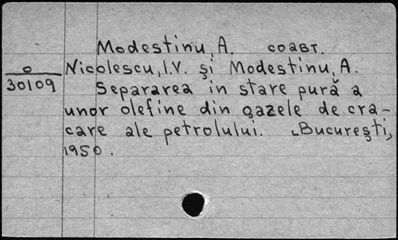 Modestinu, A. соавт.
o
30109
Nicolescu, I.V. şi Modestinu, A.
Separarea in stare pură a
unor olefine din gazele de cra-
care ale petrolului. Bucureşti,
1950.